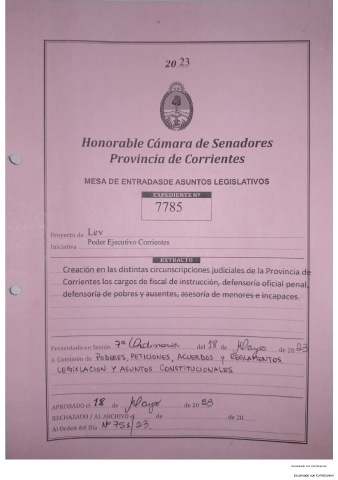 2023
Honorable Cámara de Senadores
Provincia de Corrientes
MESA DE ENTRADASDE ASUNTOS LEGISLATIVOS
EXPEDIENTE Nº
7785
Proyecto de Ley
Iniciativa Poder Ejecutivo Corrientes
EXTRACTO
Creación en las distintas circunscripciones judiciales de la Provincia de
Corrientes los cargos de fiscal de instrucción, defensoría oficial penal,
defensoría de pobres y ausentes, asesoría de menores e incapaces.
Presentado en Sesión 7º Ordinaria del 18 de Mayo de 2023
A Comisión de PODERES, PETICIONES, ACUERDOS Y REGLAMENTOS
LEGISLACION Y ASUNTOS CONSTITUCIONALES
APROBADO el 18 de Mayo de 20
RECHAZADO / AL ARCHIVO de de 20
Al Orden del Día Nº 751/23.